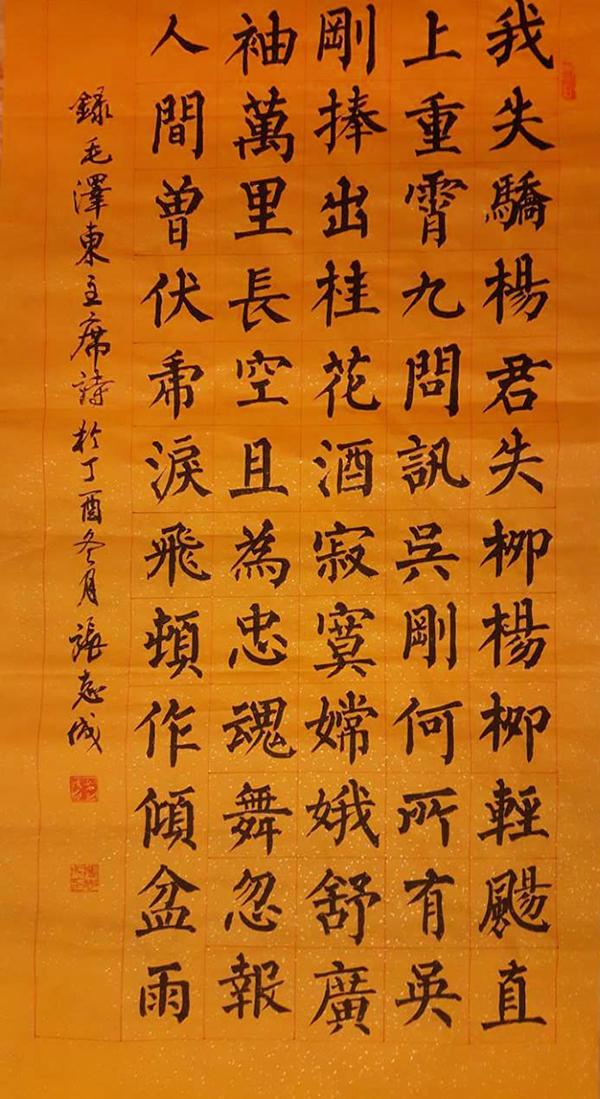 我失驕楊君失柳楊柳輕颺直
上重霄九問訊吳剛何所有吳
剛捧出桂花酒寂寞嫦娥舒廣
袖萬里長空且為忠魂舞忽報
人間曾伏虎淚飛頓作傾盆雨
錄毛澤東主席詩於丁酉冬月張志成